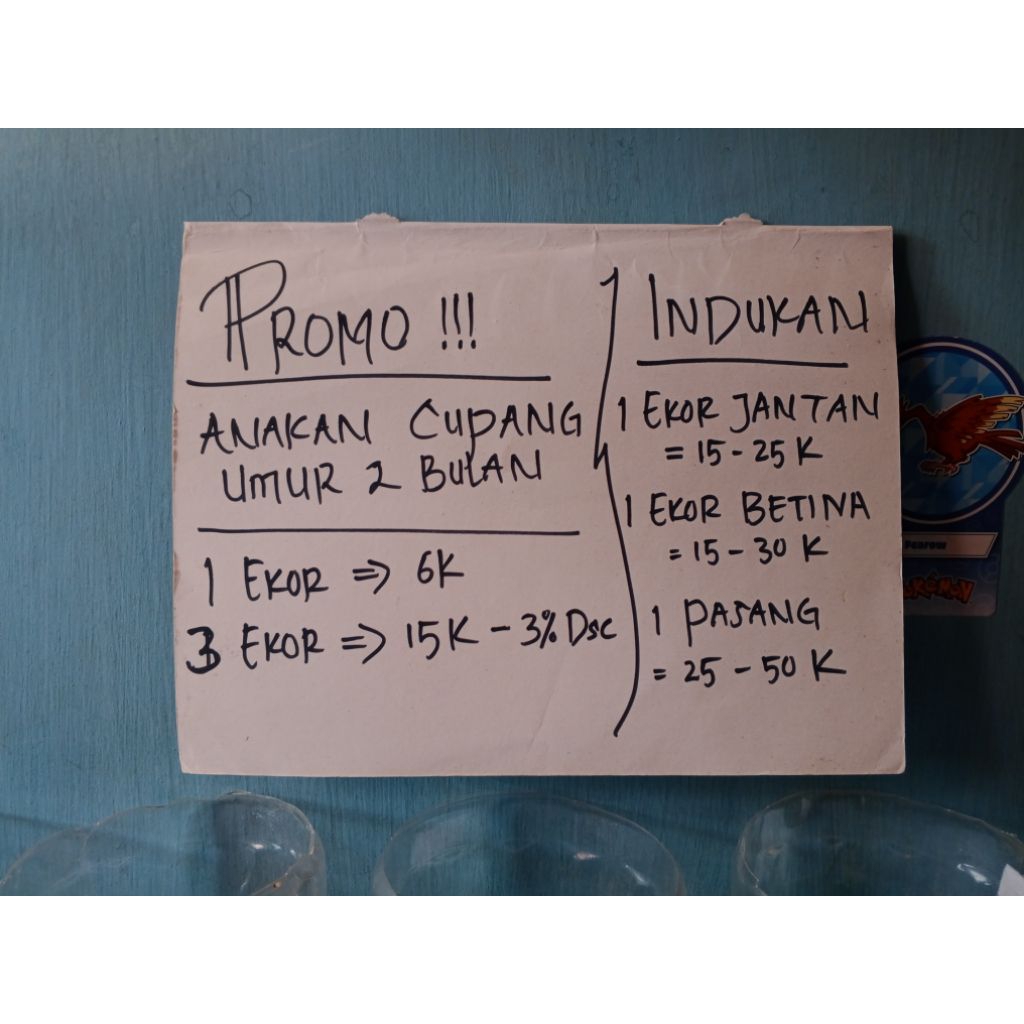 PROMO !!!
ANAKAN CUPANG
UMUR 2 BULAN
1 EKOR => 6K
3 EKOR => 15K - 3% Dsc
INDUKAN
1 EKOR JANTAN
= 15 - 25 K
1 EKOR BETINA
= 15 - 30 K
1 PASANG
= 25 - 50 K